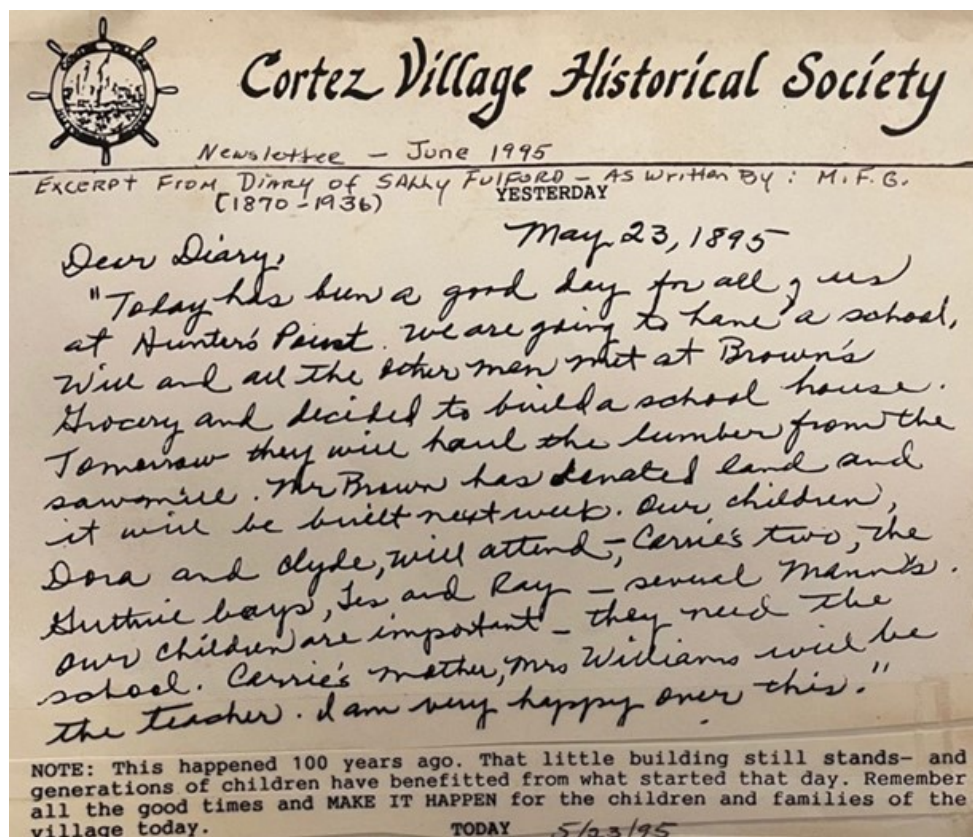 Cortez Village Historical Society
Newsletter - June 1995
Excerpt From Diary of Sally Fulford - As Written By: M.F.G.
(1870-1936)
YESTERDAY
May 23, 1895
Dear Diary,
"Today has been a good day for all of us
at Hunter's Point. We are going to have a school,
Will and all the other men met at Brown's
Grocery and decided to build a school house.
Tomorrow they will haul the lumber from the
sawmill. Mr Brown has donated land and
it will be built next week. Our children,
Dora and Clyde, will attend -, Carrie's two, the
Guthrie boys, Les and Ray - several Mann's.
Our children are important - they need the
school. Carrie's mother, Mrs Williams will be
the teacher. I am very happy over this."
NOTE: This happened 100 years ago. That little building still stands- and
generations of children have benefitted from what started that day. Remember
all the good times and MAKE IT HAPPEN for the children and families of the
village today.
TODAY 5/23/95